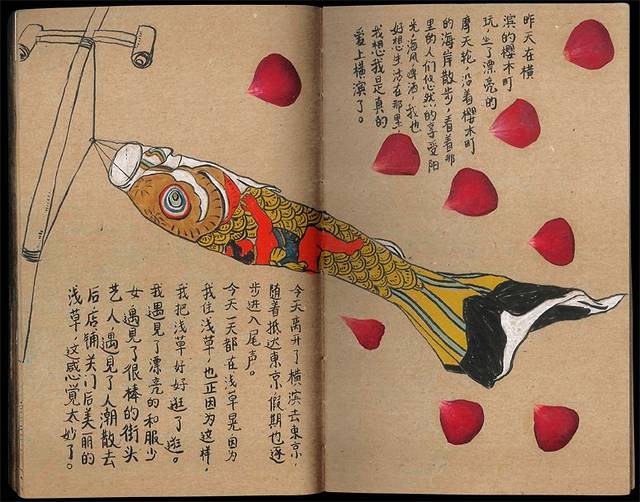 昨天在横
滨的樱木町
玩,坐了漂亮的
摩天轮,沿着樱木町
的海岸散步,看着那
里的人们悠然的享受阳
光,海风,啤酒,我也
好想生活在那里,
我想我是真的
爱上横滨了。
今天离开了横滨去東京,
随着抵达東京假期也逐
步进入尾声。
今天一天都在浅草晃因为
我住浅草,也正因为这样,
我把浅草好好逛了逛。
我遇见了漂亮的和服少
女,遇见了很棒的街头
艺人,遇见了人潮散去
后,店铺关门后美丽的
浅草,这感觉太妙了。